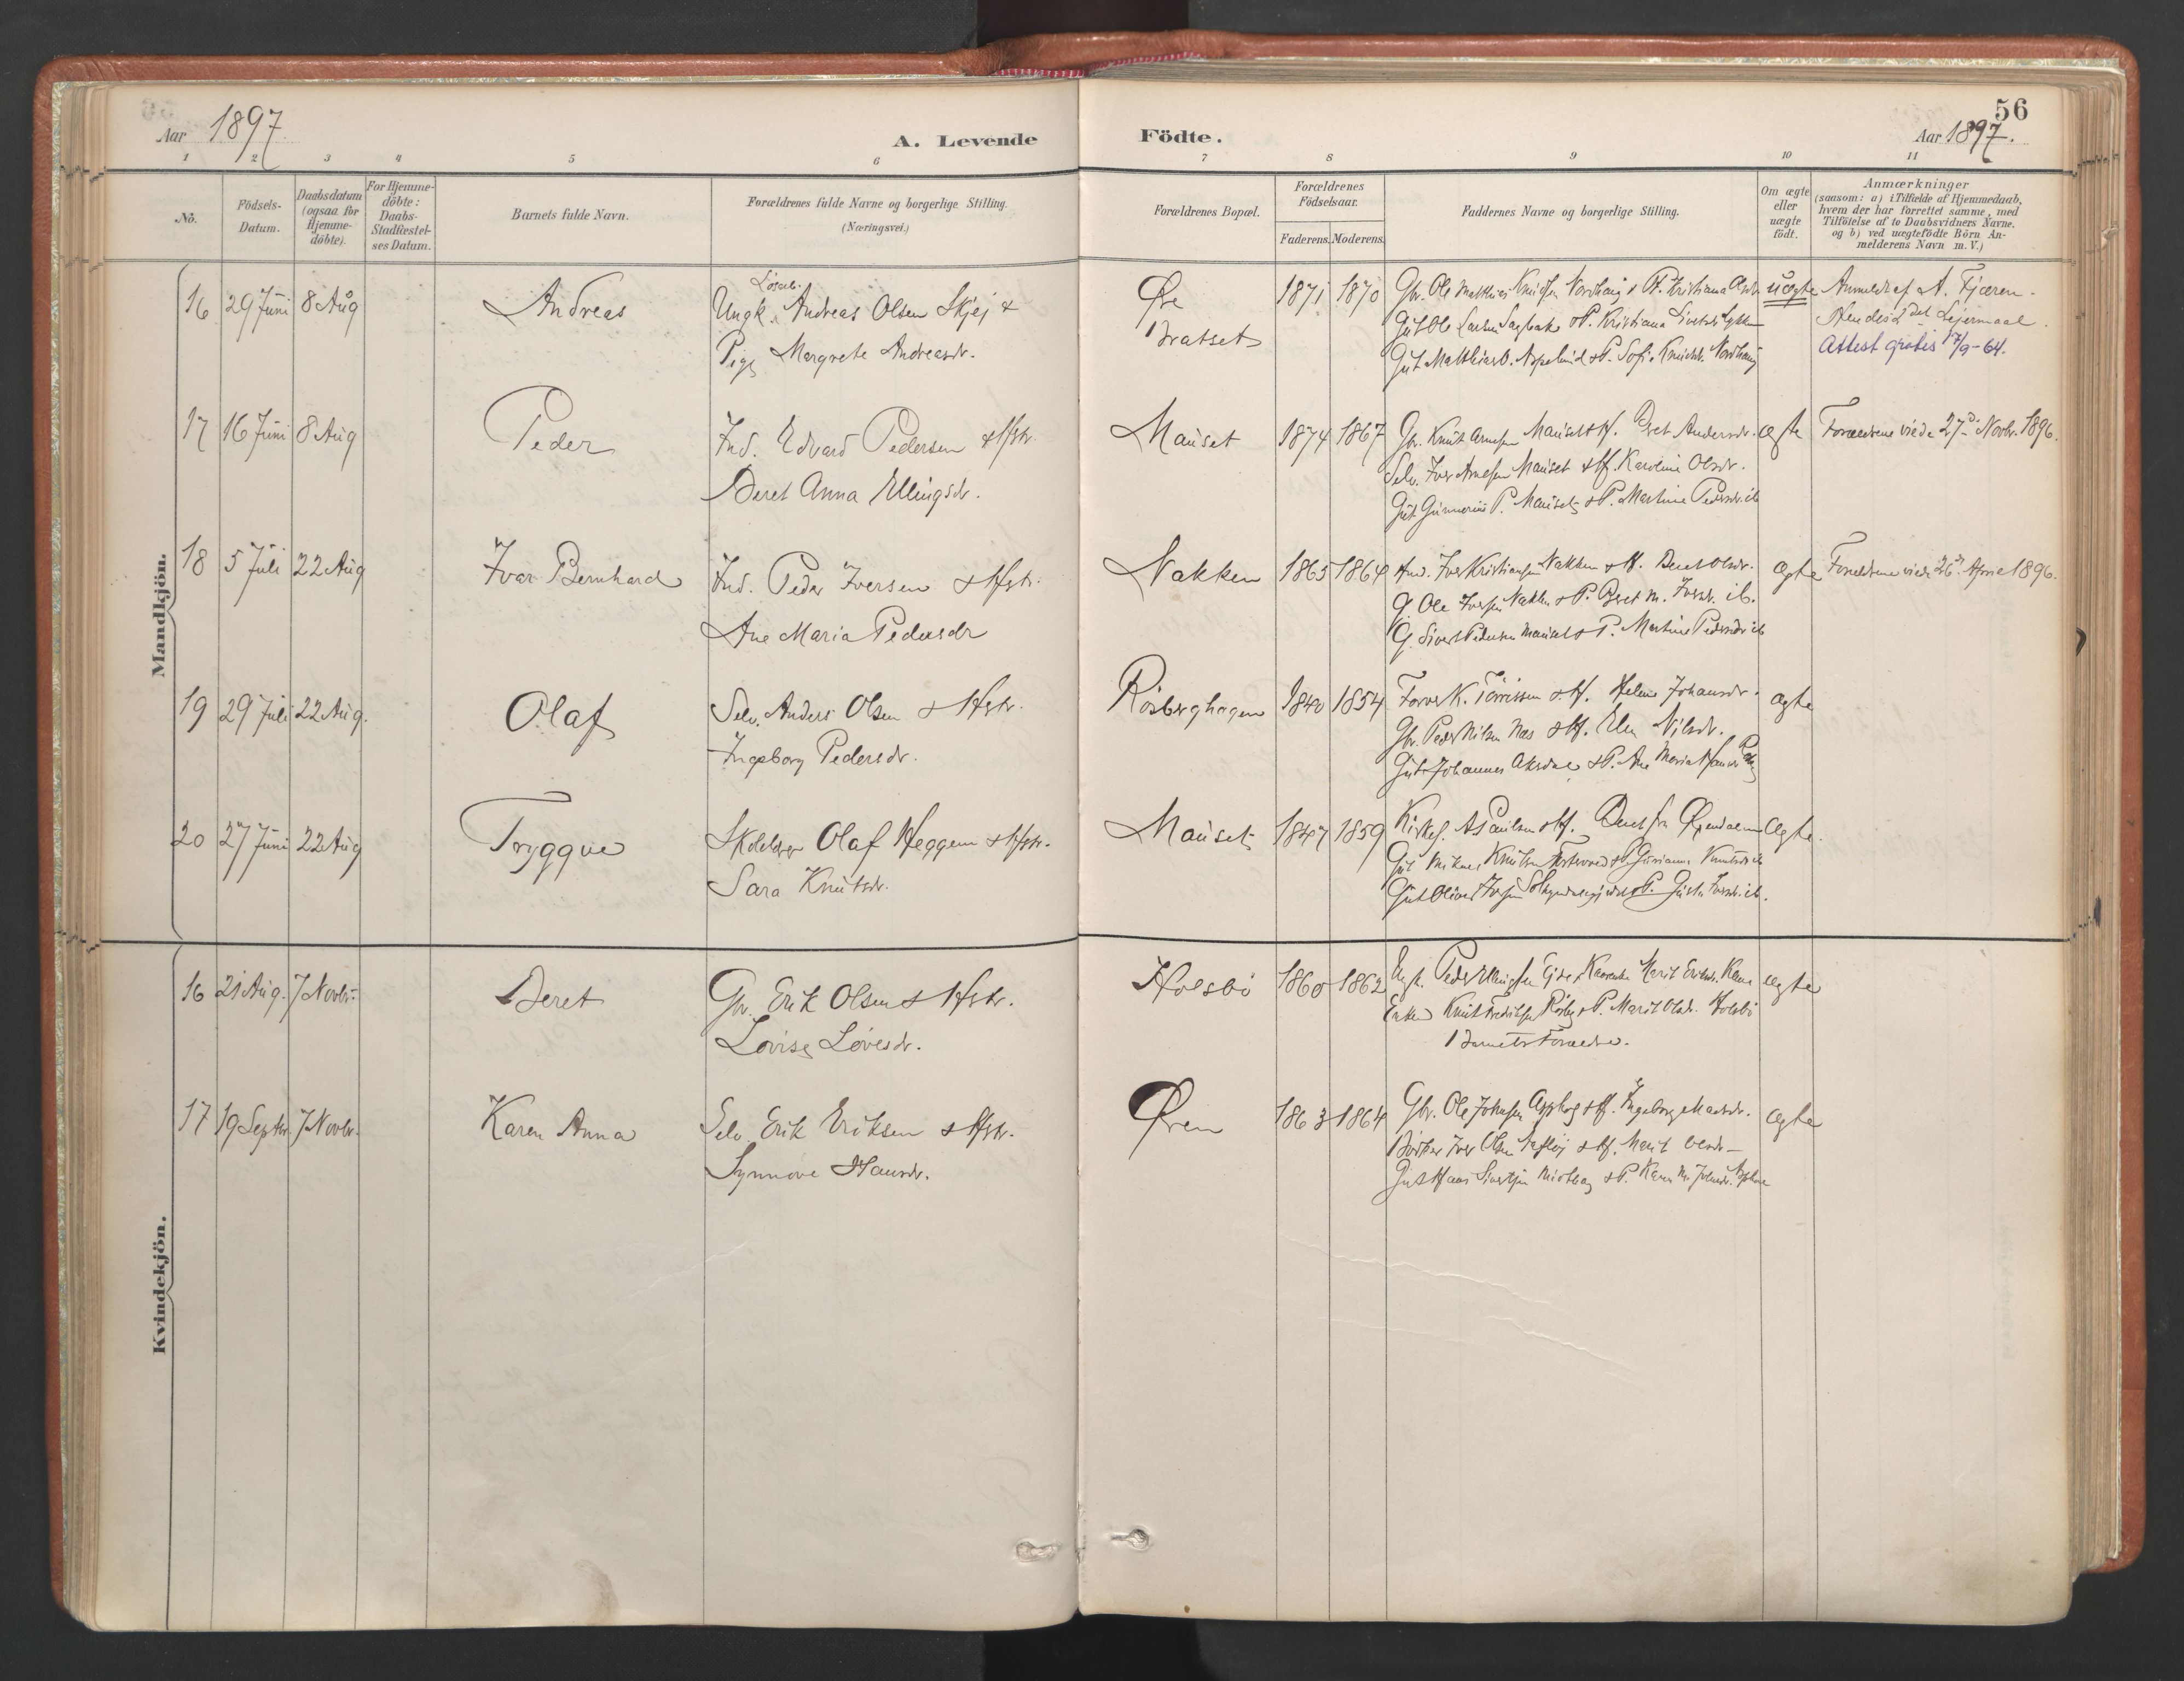 56
Aar 1897
A. Levende
Födte.
Aar 1897.
1 2 3 4 5 6 7 8 9 10 11
No.
Födsels-
Datum.
Daabsdatum
(ogsaa for
Hjemme-
döbte).
For Hjemme-
döbte:
Daabs-
Stadfæstel-
ses Datum.
Barnets fulde Navn.
Forældrenes fulde Navne og borgerlige Stilling.
(Næringsvei.)
Forældrenes Bopæl.
Forældrenes
Födselsaar.
Faderens. Moderens.
Faddernes Navne og borgerlige Stilling.
Om ægte
eller
uægte
födt.
Anmærkninger
(saasom: a) i Tilfælde af Hjemmedaab,
hvem der har forrettet samme, med
Tilföielse af to Daabsvidners Navne.
og b) ved uægtefödte Börn An-
melderens Navn m. V.)
Mandkjön.
16 29 Juni 8 Aug
Andreas
Ungk. Andreas Olsen Skjej &
Pige Margrete Andreasdr.
Øre
Bratset
1871 1870
uægte
Anmeldt af A. Fjæren.
Hendes 2det Lejermaal.
Attest gratis 17/9-64.
17 16 Juni 8 Aug
Peder
Ind. Edvard Pedersen & Hstr.
Beret Anna Ellingsdr.
Mauset
1874 1867
Gbr. Knut Arnesen Mauset & H. Beret Andersdr.
Selv. Iver Arnesen Mauset & H. Karoline Olsdr.
Gut Gunnerius P. Mauset & P. Martine Pedersdr. ib
ægte
Forældrene viede 27d Novbr. 1896.
18 5 Juli 22 Aug
Ivar Bernhard
Ind. Peder Iversen & Hstr.
Ane Maria Pedersdr
Nakken
1865 1864
Ind. Iver Kristiansen Nakken & H. Beret Olsdr.
G. Ole Iversen Nakken & P. Beret M. Iversdr. ib.
G. Sivert Pedersen Mauset & P. Martine Pedersdr ib
ægte
Forældrene viede 26d April 1896.
19 29 Juli 22 Aug.
Olaf
Selv. Anders Olsen & Hstr.
Ingeborg Pedersdr.
Rösberghagen
1840 1854
K. Törrissen & H. Helene Johansdr.
Gbr. Peder Nilsen Næs & H. Elen Nilsdr.
Gut Johannes Aksdal & P. Ane Maria
ægte
20 27 Juni 22 Aug
Tryggve
Olaf Heggem & Hstr.
Sara Knutsdr.
Mauset
1847 1859
Kirkes. A Paulsen & H.
Gut Knutsen & P. Knutsdr ib
Gut Oliver Iversen & P. Iversdr. ib.
ægte.
Kvindekjön.
16 21 Aug. 7 Novbr.
Beret
Gbr. Erik Olsen & Hstr.
Lovise Lovesdr.
Holsbö
1860 1862
Peder Ellingsen Marit Eriksdr.
Knut Fredriksen Rösberg & P. Marit Olsdr. Holsbö
Barnets Forældre.
ægte
17 19 Septbr. 7 Novbr.
Karen Anna
Selv. Erik Eriksen & Hstr.
Synnove Hansdr.
Ørem
1863 1864
Gbr. Ole Johnsen Asphog & H. Ingeborg Madsdr.
Iver Olsen & H. Marit Olsdr
Gut Hans Sivertsen & P. Karen M. Johnsdr. Asphog
ægte